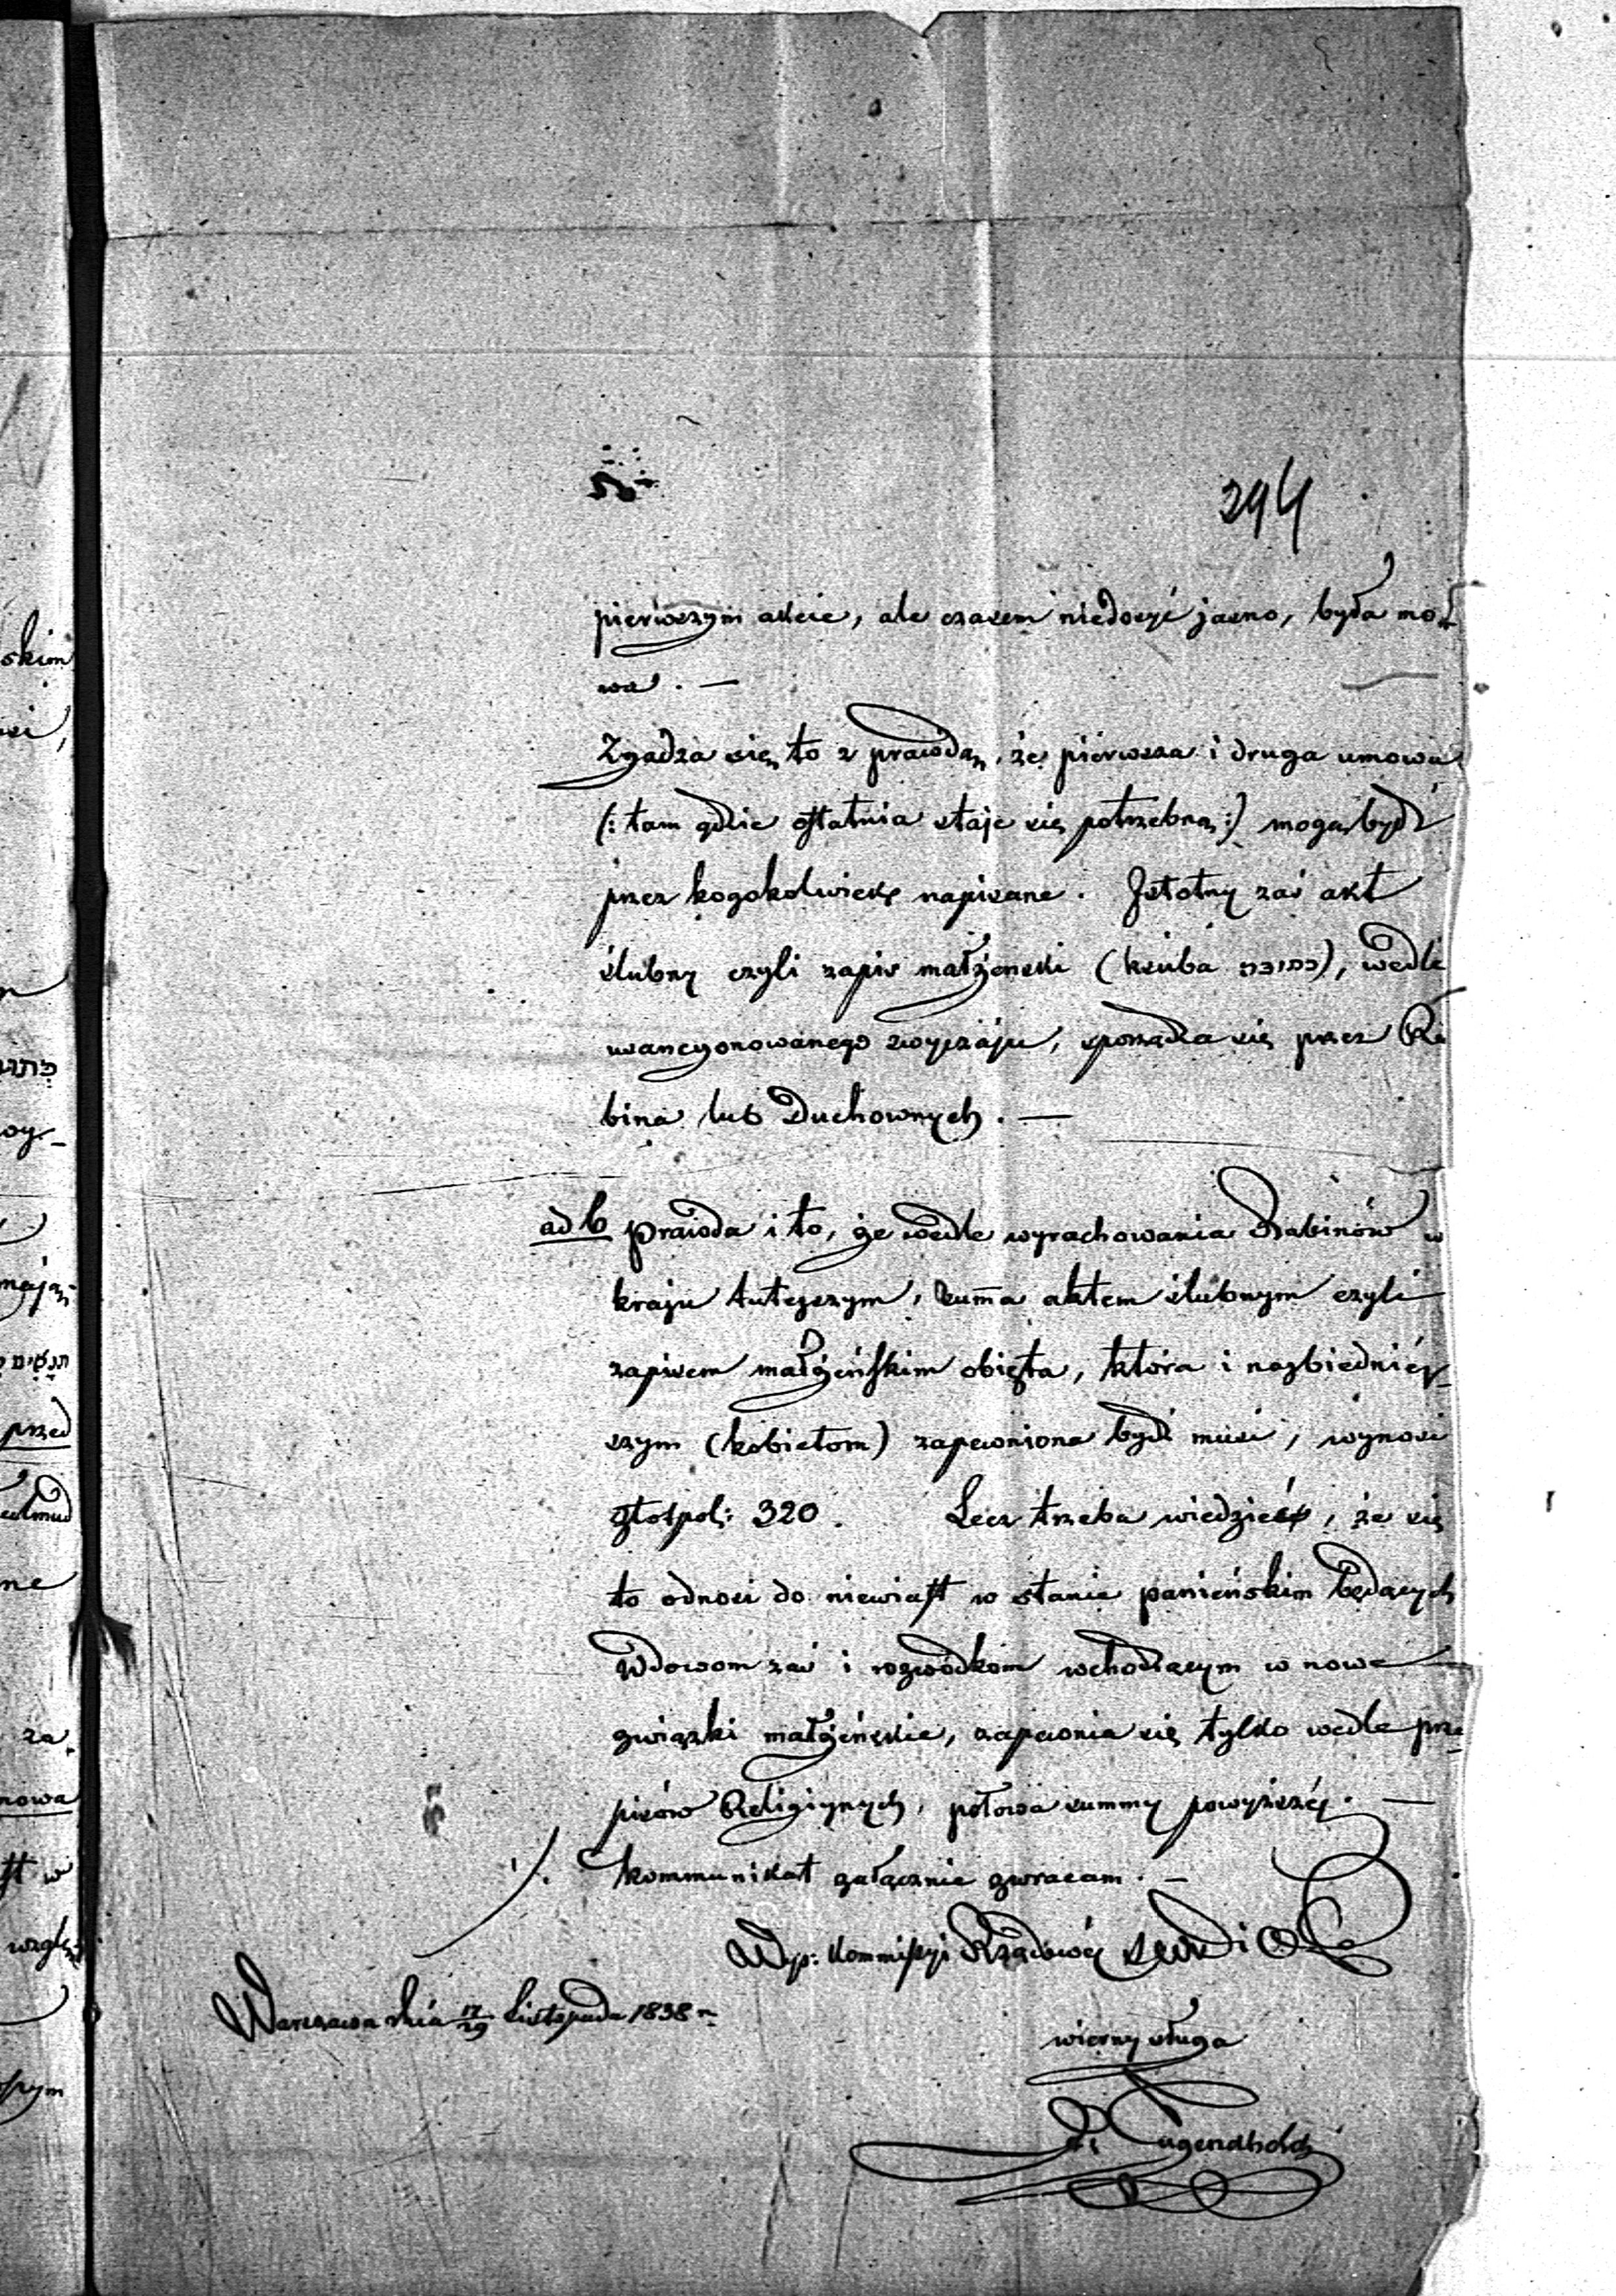 294
pierwszym akcie, ale czasem niedosyć jasno, była mo-
wa. —
Zgadza się to z prawdą, że pierwsza i druga umowa
(: tam gdzie ostatnia staje się potrzebną :) mogą bydź
przez kogokolwiek napisane. Istotny zaś akt
ślubny czyli zapis małżenski (ksuba כתובה), wedle
usancyonowanego zwyczaju, sporządza się przez Ra
bina lub Duchownych. —
ad b prawda i to, że wedle wyrachowania Rabinów w
kraju tutejszym, summa aktem ślubnym czyli
zapisem małżeńskim obięta, która i najbiedniéj-
szym (kobietom) zapewniona bydź musi, wynosi
złotpol: 320. Lecz trzeba wiedzieć, że się
to odnosi do niewiast w stanie panieńskim będących
Wdowom zaś i rozwódkom wchodzącym w nowe
związki małżeńskie, zapewnia się tylko wedle prze-
pisów Religijnych, połowa summy powyższéj. —
./. Kommunikat załącznie zwracam. —
Wyp: Kommissyi Rządowéj
Warszawa dnia 17/29 Listopada 1838 r.
wierny sługa
J. Tugendhold
skim
כתוב
mają
תנאים
przed
Talmud
ne
za
mowa
st w
wzglę